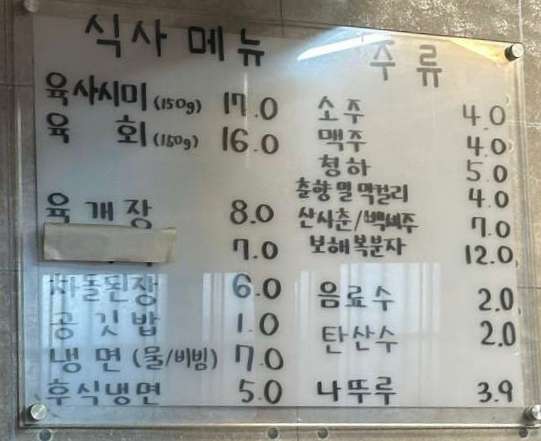 식사메뉴
육사시미 (150g) 17.0
육 회 (150g) 16.0
육개장 8.0
7.0
차돌된장 6.0
공깃밥 1.0
냉면 (물/비빔) 7.0
후식냉면 5.0
주류
소주 4.0
맥주 4.0
청하 5.0
춘향 밀 막걸리 4.0
산사춘/백세주 7.0
보해복분자 12.0
음료수 2.0
탄산수 2.0
나뚜루 3.9